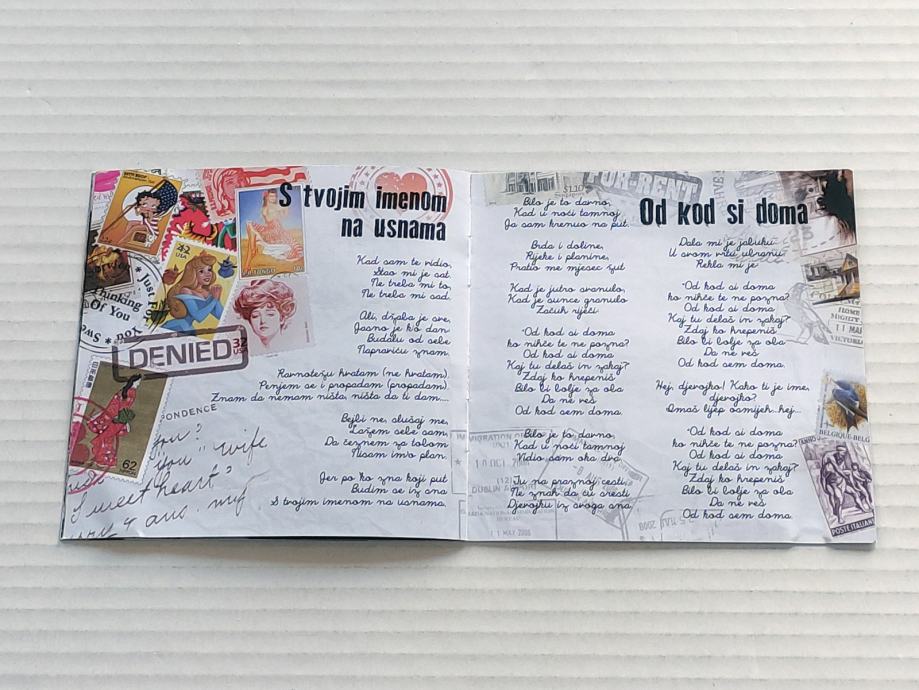 S tvojim imenom
na usnama
Kad sam te vidio,
Stao mi je sat.
Ne treba mi to,
Ne treba mi sad.
Ali, džaba je sve,
Jasno je ko dan
Budalu od sebe
Napraviću znam.
Ravnotežu hvatam (ne hvatam),
Penjem se i propadam (propadam).
Znam da nemam ništa, ništa da ti dam...
Bježi ne, slušaj me,
Lažem sebe sam,
Da čeznem za tobom
Nisam imo plan.
Jer po ko zna koji put
Budim se iz sna
S tvojim imenom na usnama.
DENIED
42
USA
32
USA
Just For
Thinking
Of You
You
62
PONDENCE
you?
"You" wife
Sweet heart?
Od kod si doma
Bilo je to davno,
Kad u noći tamnoj
Ja sam krenuo na put.
Brda i doline,
Rijeke i planine,
Pratio me mjesec žut
Kad je jutro svanulo,
Kad je sunce granulo
Začuh riječi
"Od kod si doma
ko nihče te ne pozna?
Od kod si doma
Kaj tu delaš in zakaj?
Zdaj ko hrepeniš
Bilo bi bolje za oba
Da ne veš
Od kod sem doma.
Bilo je to davno,
Kad u noći tamnoj
Vidio sam oka dva.
Tu na praznoj cesti,
Ne znah da ću sresti
Djevojku iz svoga sna.
Dala mi je jabuku
U svom vrtu ubranu
Rekla mi je
"Od kod si doma
ko nihče te ne pozna?
Od kod si doma
Kaj tu delaš in zakaj?
Zdaj ko hrepeniš
Bilo bi bolje za oba
Da ne veš
Od kod sem doma.
Hej, djevojko! Kako ti je ime,
djevojko?
Imaš lijep osmijeh..hej...
"Od kod si doma
ko nihče te ne pozna?
Od kod si doma
Kaj tu delaš in zakaj?
Zdaj ko hrepeniš
Bilo bi bolje za oba
Da ne veš
Od kod sem doma.
FOR-RENT
$1.10
BELGIQUE-BELG
POSTE ITALIAN